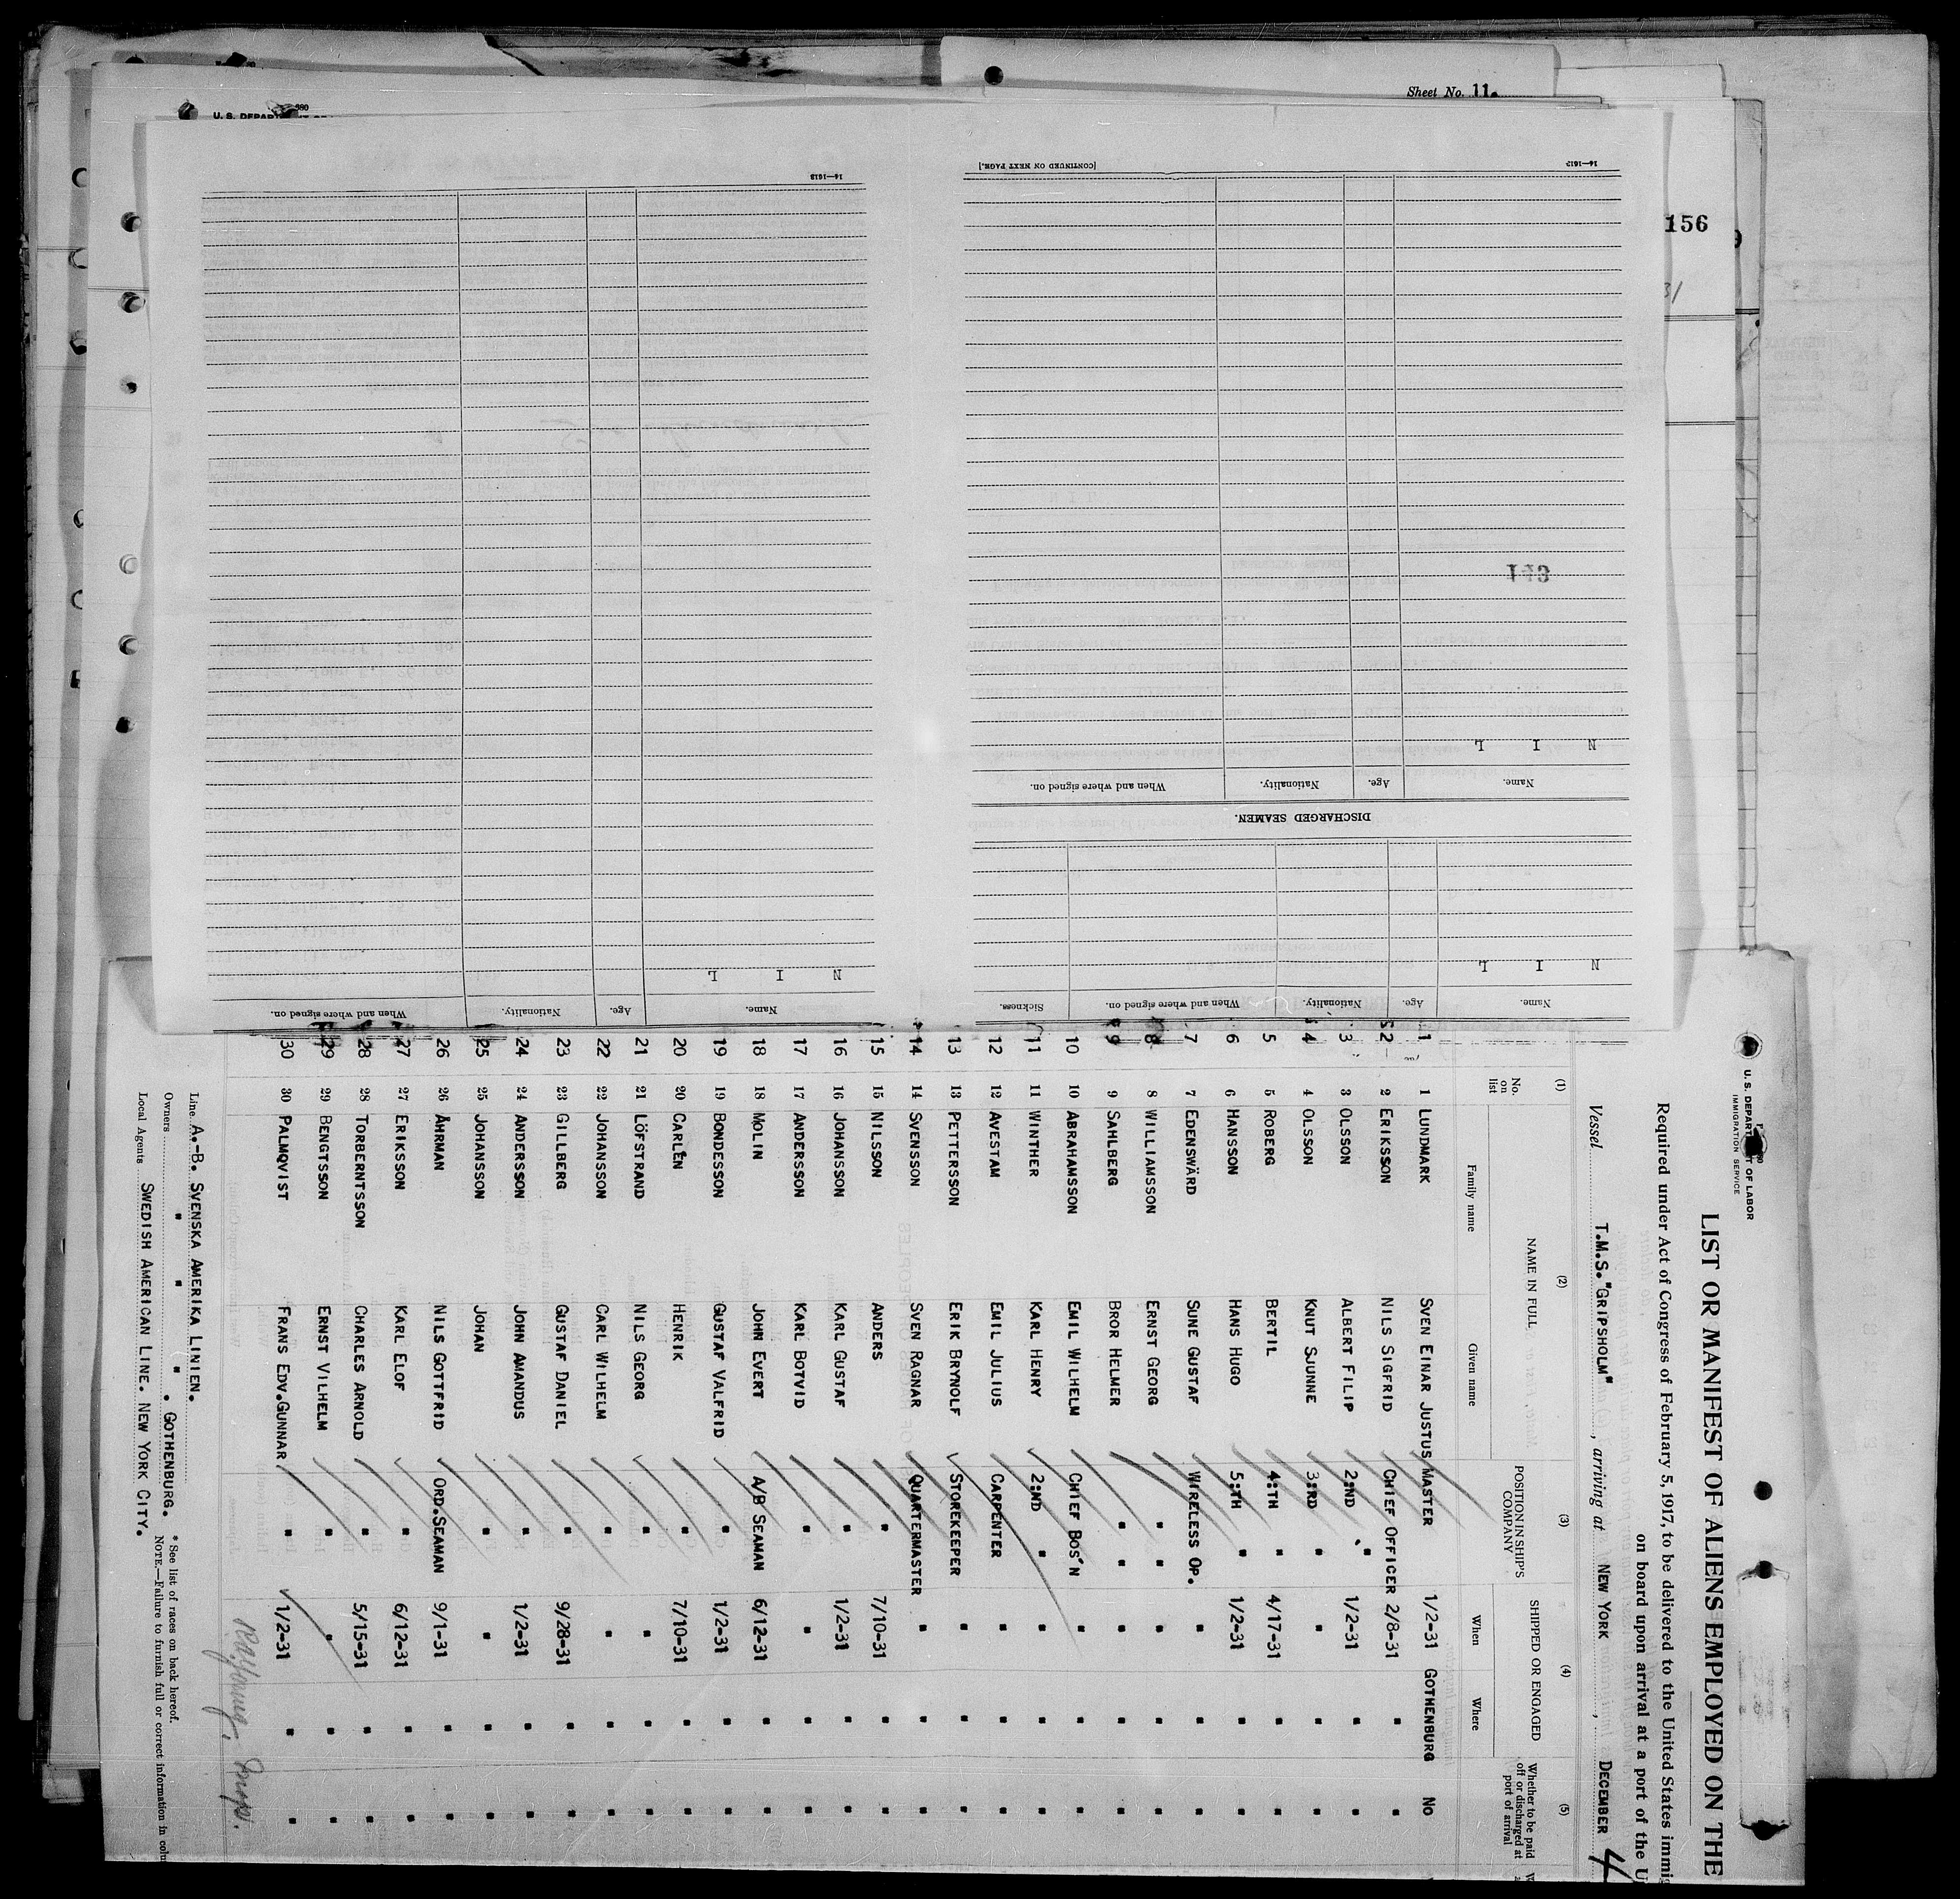 Sheet No. 11.
156
[CONTINUED ON NEXT PAGE.]
14—1613
N I L
Name. Age. Nationality. When and where signed on.
DISCHARGED SEAMEN.
143
N I L
Name. Age. Nationality. When and where signed on. Sickness.
N I L
Name. Age. Nationality. When and where signed on.
U. S. DEPARTMENT OF LABOR
IMMIGRATION SERVICE
LIST OR MANIFEST OF ALIENS EMPLOYED ON THE
Required under Act of Congress of February 5, 1917, to be delivered to the United States immig
on board upon arrival at a port of the U
Vessel T.M.S."GRIPSHOLM", arriving at NEW YORK, DECEMBER 4
(1) (2) (3) (4) (5)
No. on list NAME IN FULL POSITION IN SHIP'S COMPANY SHIPPED OR ENGAGED Whether to be paid off or discharged at port of arrival
Family name Given name When Where
1 1 LUNDMARK SVEN EINAR JUSTUS MASTER 1/2-31 GOTHENBURG NO
2 2 ERIKSSON NILS SIGFRID CHIEF OFFICER 2/8-31 " "
3 3 OLSSON ALBERT FILIP 2:ND " 1/2-31 " "
4 4 OLSSON KNUT SJUNNE 3:RD " " " "
5 5 ROBERG BERTIL 4:TH " 4/17-31 " "
6 6 HANSSON HANS HUGO 5:TH " 1/2-31 " "
7 7 EDENSWÄRD SUNE GUSTAF WIRELESS OP. " " "
8 8 WILLIAMSSON ERNST GEORG " " " " "
9 9 SAHLBERG BROR HELMER " " " " "
10 10 ABRAHAMSSON EMIL WILHELM CHIEF BOS'N " " "
11 11 WINTHER KARL HENRY 2:ND " " " "
12 12 AVESTAM EMIL JULIUS CARPENTER " " "
13 13 PETTERSSON ERIK BRYNOLF STOREKEEPER " " "
14 14 SVENSSON SVEN RAGNAR QUARTERMASTER " " "
15 15 NILSSON ANDERS " 7/10-31 " "
16 16 JOHANSSON KARL GUSTAF " 1/2-31 " "
17 17 ANDERSSON KARL BOTVID " " " "
18 18 MOLIN JOHN EVERT A/B SEAMAN 6/12-31 " "
19 19 BONDESSON GUSTAF VALFRID " 1/2-31 " "
20 20 CARLÉN HENRIK " 7/10-31 " "
21 21 LÖFSTRAND NILS GEORG " " " "
22 22 JOHANSSON CARL WILHELM " " " "
23 23 GILLBERG GUSTAF DANIEL " 9/28-31 " "
24 24 ANDERSSON JOHN AMANDUS " 1/2-31 " "
25 25 JOHANSSON JOHAN " " " "
26 26 ÅHRMAN NILS GOTTFRID ORD.SEAMAN 9/1-31 " "
27 27 ERIKSSON KARL ELOF " 6/12-31 " "
28 28 TORBERNTSSON CHARLES ARNOLD " 5/15-31 " "
29 29 BENGTSSON ERNST VILHELM " " " "
30 30 PALMQVIST FRANS EDV.GUNNAR " 1/2-31 " "
Line A.-B. SVENSKA AMERIKA LINIEN.
Owners " " " . GOTHENBURG.
Local Agents SWEDISH AMERICAN LINE. NEW YORK CITY.
* See list of races on back hereof.
NOTE.—Failure to furnish full or correct information in colu